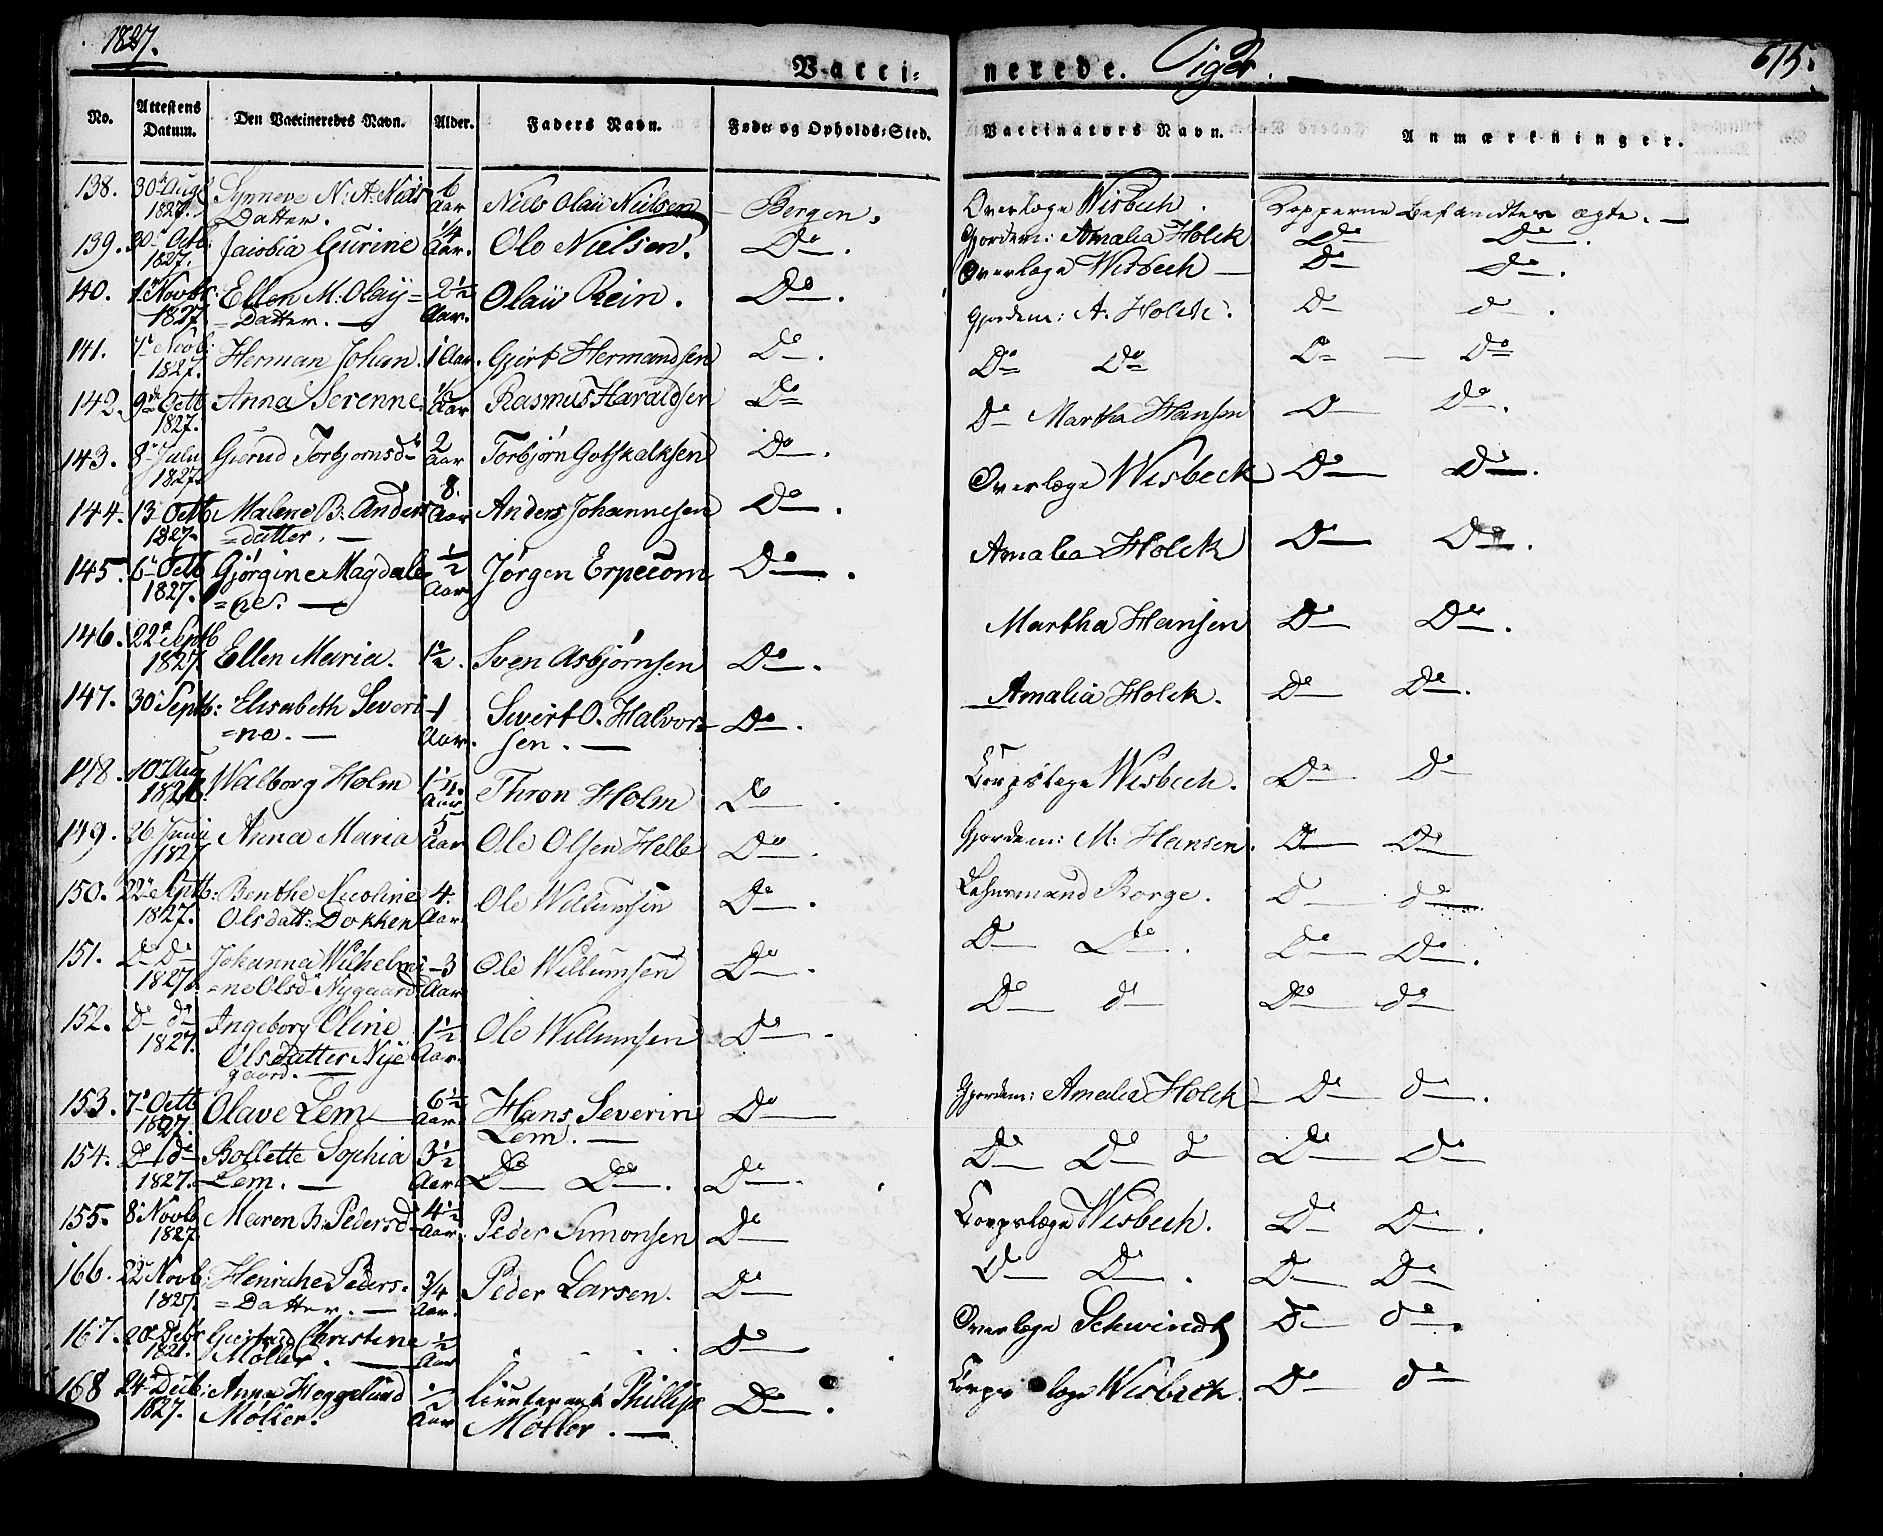 1827.
Vacci- nerede. Piger. 615.
No. Attestens Datum. Den Vaccineredes Navn. Alder. Faders Navn. Føde- og Opholds-Sted. Vaccinators Navn. Anmærkninger.
138. 30 Aug 1827. Synneve N: A. Niels Datter. 6 Aar Niels Olaü Nielsen Bergen. Overlæge Wisbech. Kopperne befandtes ægte.
139. 30 Octb: 1827. Jacobia Gurine 1/4 Aar. Ole Nielsen. Do. Gjordem: Amalia Holck Do Do.
140. 1 Novbr: 1827. Ellen M. Olay= =Datter. 2 1/2 Aar. Olaü Rein. Do. Overlæge Wisbech Do Do.
141. 7 Novb: 1827. Herman Johan. 1 Aar. Gjert Hermandsen Do. Gjordem: A. Holck. Do do.
142. 9de Octb 1827. Anna Serenne 1/2 Aar Rasmus Haraldsen Do Do Do Do Do
143. 8 Julii 1827. Giørud Torbjørnsd: 2 Aar Torbjørn Gotskalksen Do. Do Martha Hansen Do Do.
144. 13 Octb 1827. Malene B. Anders =datter. 8 Aar Anders Johannesen Do. Overlæge Wisbeck Do Do.
145. 6 Octb 1827. Gjørgine Magdale =ne. 1/2 Aar Jørgen Erpecom Do. Amalia Holck Do Do.
146. 22 Septb 1827. Ellen Maria. 1 1/2. Sven Asbjørnsen Do. Martha Hansen Do Do.
147. 30 Septb: Elisabeth Severi =na. 1 Aar. Sivert O. Halvor= sen. Do. Amalia Holck. Do Do.
148. 10 Aug 1826. Walborg Holm 1 1/4. Aar Thron Holm Do. Corpslæge Wisbech. Do Do
149. 26 Junii 1827 Anna Maria 5 Aar Ole Olsen Helle Do. Gjordem: M. Hansen. Do Do
150. 22 Septb: 1827. Benthe Nicoline Olsdatt: Dokken 4. Aar. Ole Willumsen Do. Lehnsmand Borge. Do do
151. Do Do 1827. Johanna Wilhelmi =ne Olsd Nygaard 3 Aar Ole Willumsen Do. Do Do. Do Do.
152. Do do 1827. Ingeborg Oline Olsdatter Nye gaard. 1 1/2 Aar. Ole Willumsen Do. Do do Do do
153. 7 Octb 1827. Olave Lem 6 1/2 Aar. Hans Severin Lem. Do Gjordem: Amalia Holck Do do.
154. Do do 1827. Bollette Sophia Lem. 3 1/2 Aar. Do Do. Do. Do Do do Do do
155. 8 Novb 1827. Maren B. Pedersd 4 1/2 Aar. Peder Simonsen Do Corpslæge Wisbech. Do Do.
166. 22 Novb: 1827. Henriche Peders= =Datter. 3/4 Aar. Peder Larsen. Do Do Do. Do Do
167. 20 Decbr 1821. Giertrud Christine Møller. 1/2 Aar Do Overlæge Schwindt Do do.
168 24 Decb: 1827. Anna Heggelund Møller. 1/2 Aar lieutenant Phillip Møller. Do. Corps læge Wisbech. Do do